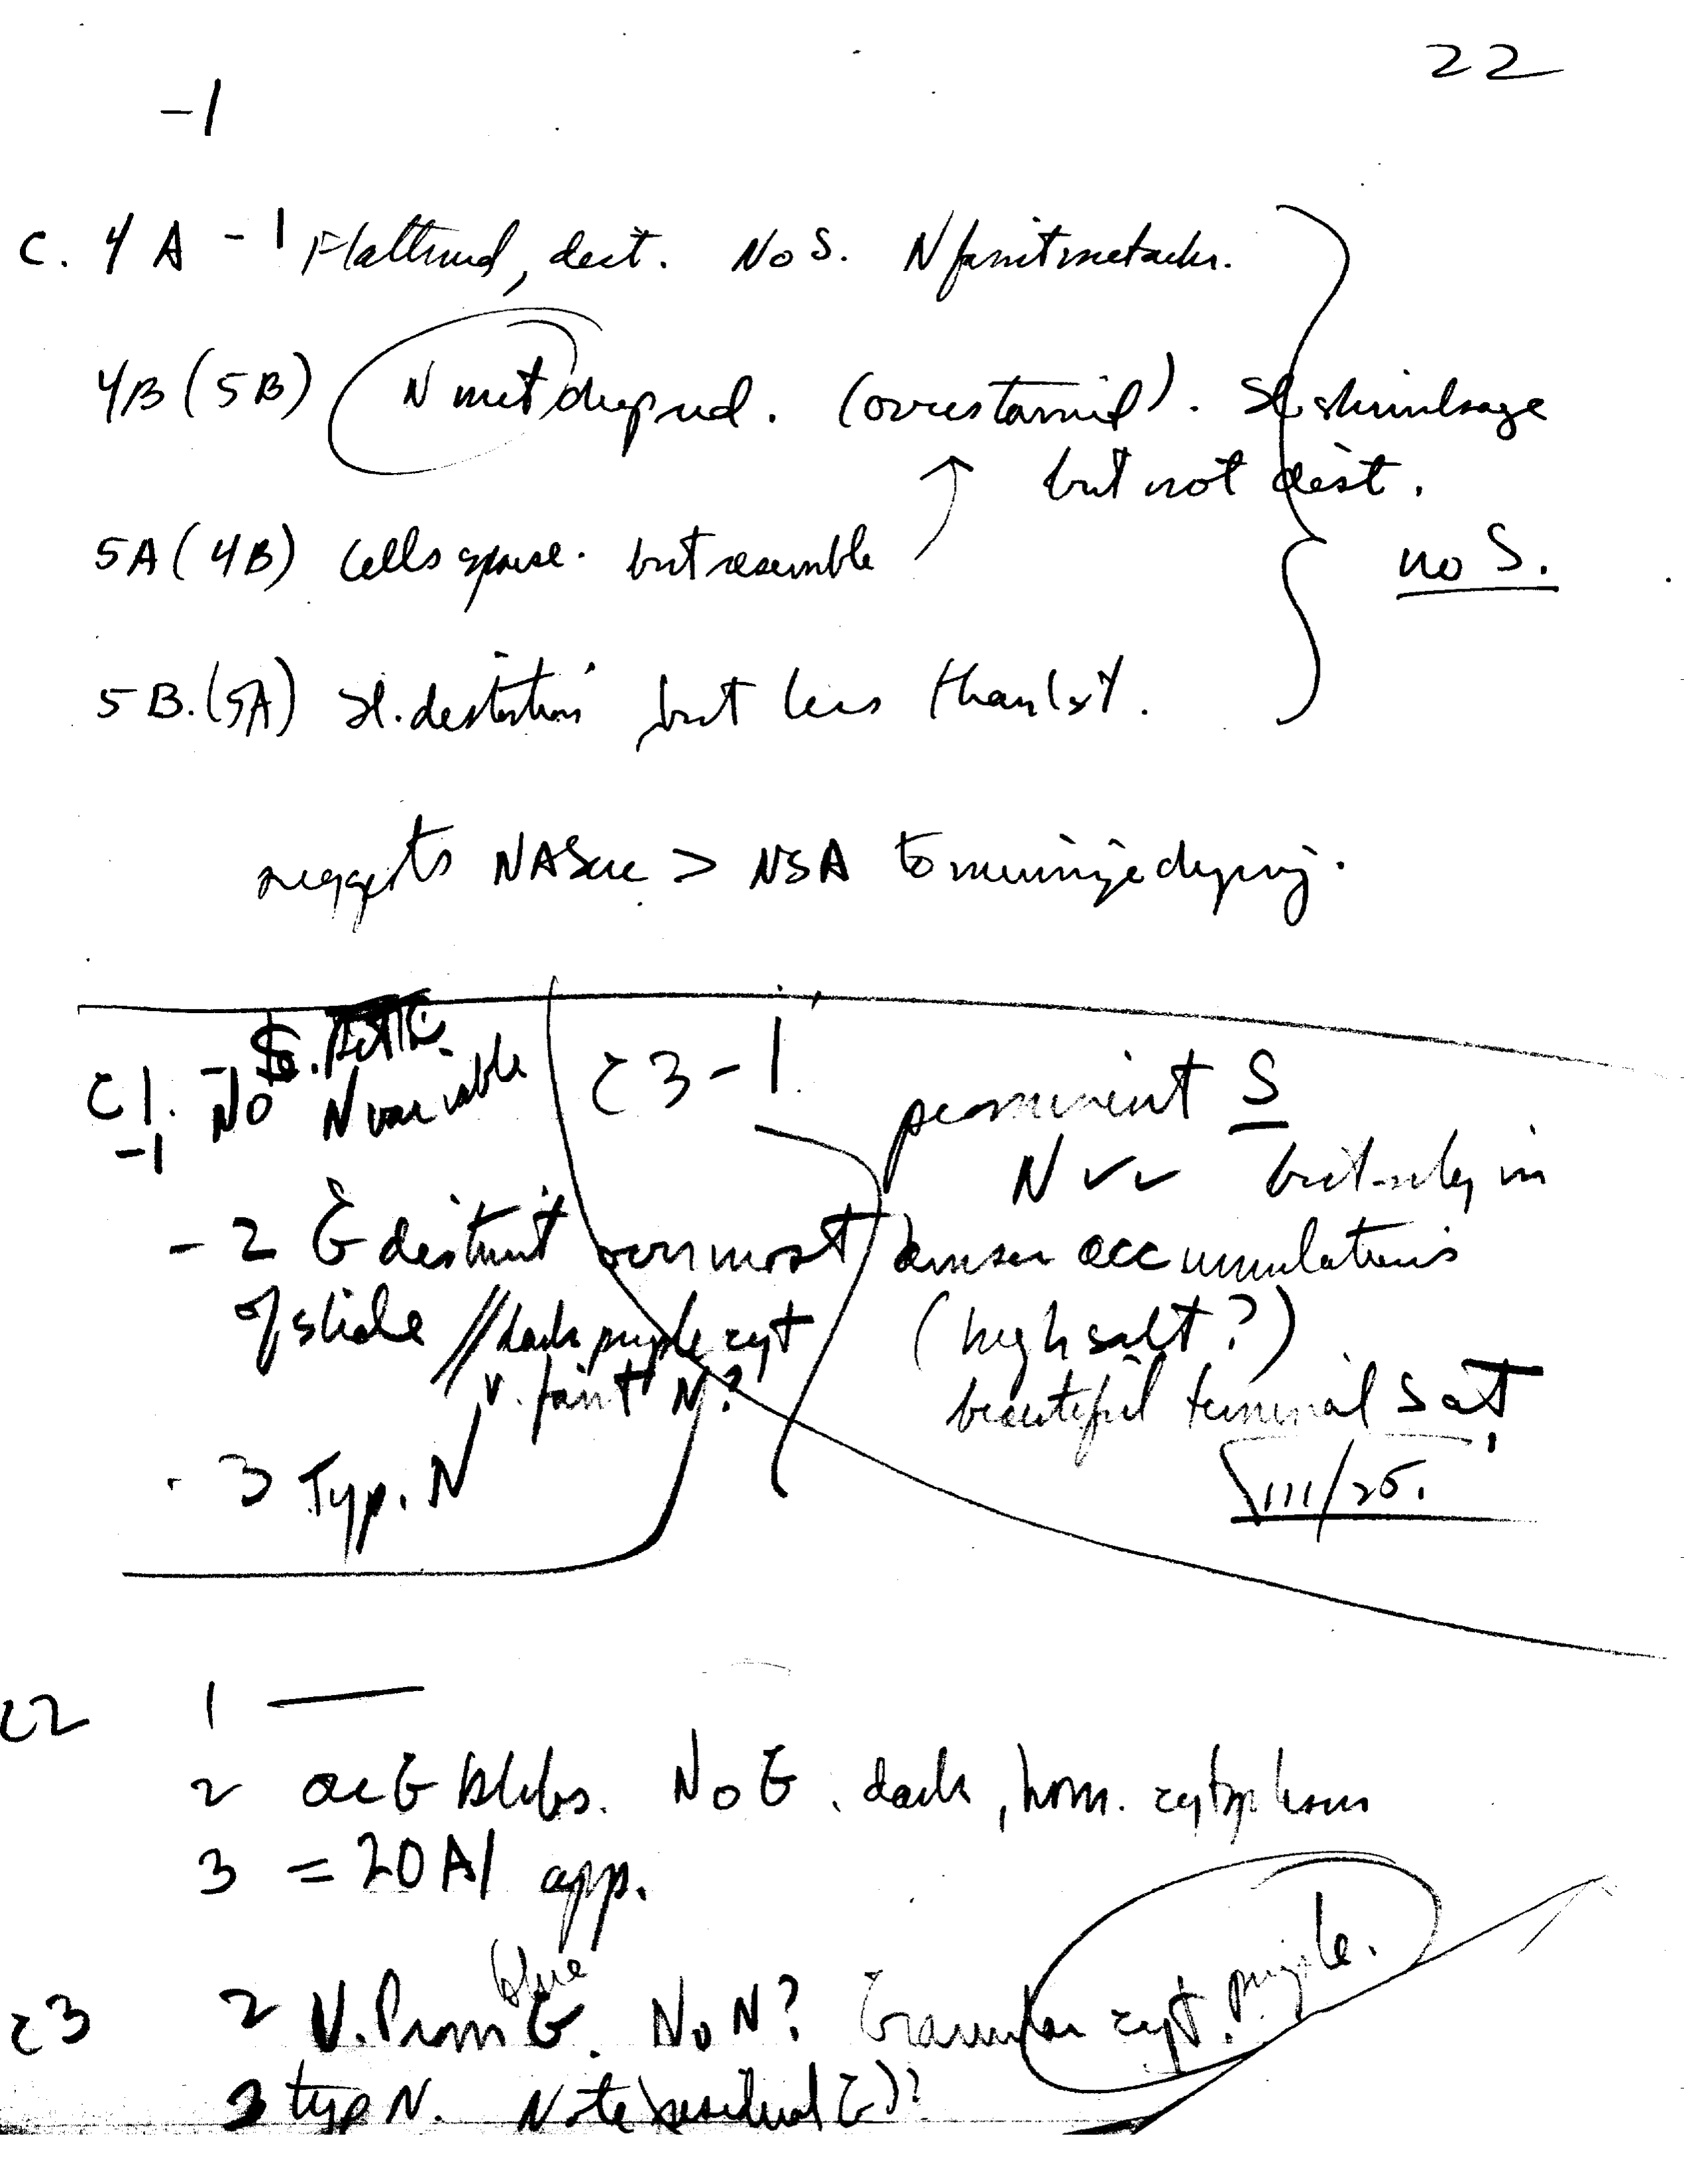 22
-1
C. 4A - 1 Flattened, dist. No S. N faint metachr.
4B (5B) N met deep red. (overstained). Sl shrinkage
but not dist.
5A (4B) Cells sparse. but resemble
no S.
5B. (5A) Sl. distortion but less than 1st.
suggests NASuc > NSA to minimize drying.
C1. -1 No S. N variable
- 2 G distinct over most
of slide // dark purple cyt
v. faint N?
- 3 Typ. N
C3 - 1
prominent S
N vv but only in
denser accumulations
(high salt?)
beautiful terminal Sat,
VIII/25.
C2 1 —
2 occ G blebs. No G. dark, hom. cytoplasm
3 = 20A1 app.
C3 2 V. Prom blue G. No N? Granular cyt. purple.
3 typ N. Note residual G)?